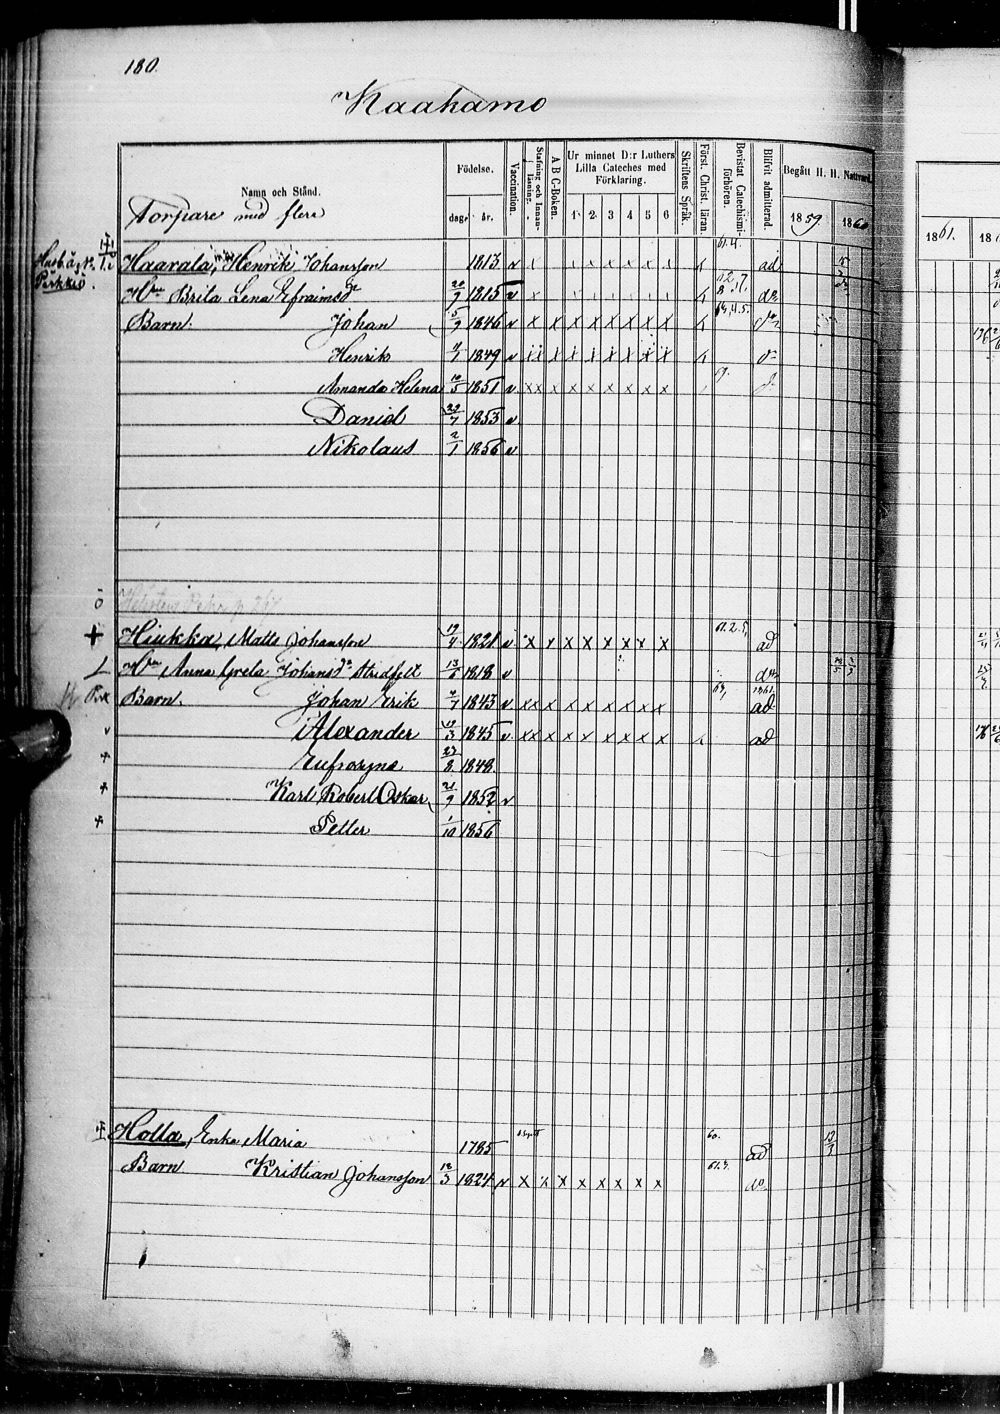 180.
Kaahamo
Namn och Stånd.
Födelse.
dag. år.
Vaccination.
Stafning och Innan-läsning.
A B C-Boken.
Ur minnet D:r Luthers Lilla Cateches med Förklaring.
1 2 3 4 5 6
Skriftens Språk.
Först. Christ. läran.
Bevistat Catechismi förhören.
Blifvit admitterad.
Begått H. H. Nattvard.
1859. 1860
1861. 18
Torpare med flere
Haarala, Henrik Johansson 1813 v ad
Perkkiö.
Hu Brita Lena Efraimsdr 20/9 1815 v do
Barn. Johan 5/9 1846 v x x x x x x x x
Henrik 1849 v x x x x x x x x
Amanda Helena 10/5 1851 v x x x x x x x x x
Daniel 29/7 1853 v
Nikolaus 2/1 1856 v
Hiukka, Matts Johansson 19/4 1821 v x x x x x x x x 61.2.5. ad
Hu Anna Greta Johansdr 13/5 1818 v do
Barn. Johan Erik 2/7 1843 v x x x x x x x x x 1861 ad
Alexander 19/3 1845 v x x x x x x x x x ad
Eufrosyne 27/8 1848.
Karl Robert Oskar 21/9 1852 v
Petter 1/10 1856
Holla, Enka Maria 1785 60. ad 12/3
Barn Kristian Johansson 18/3 1824 v x x x x x x x x 61.3. do